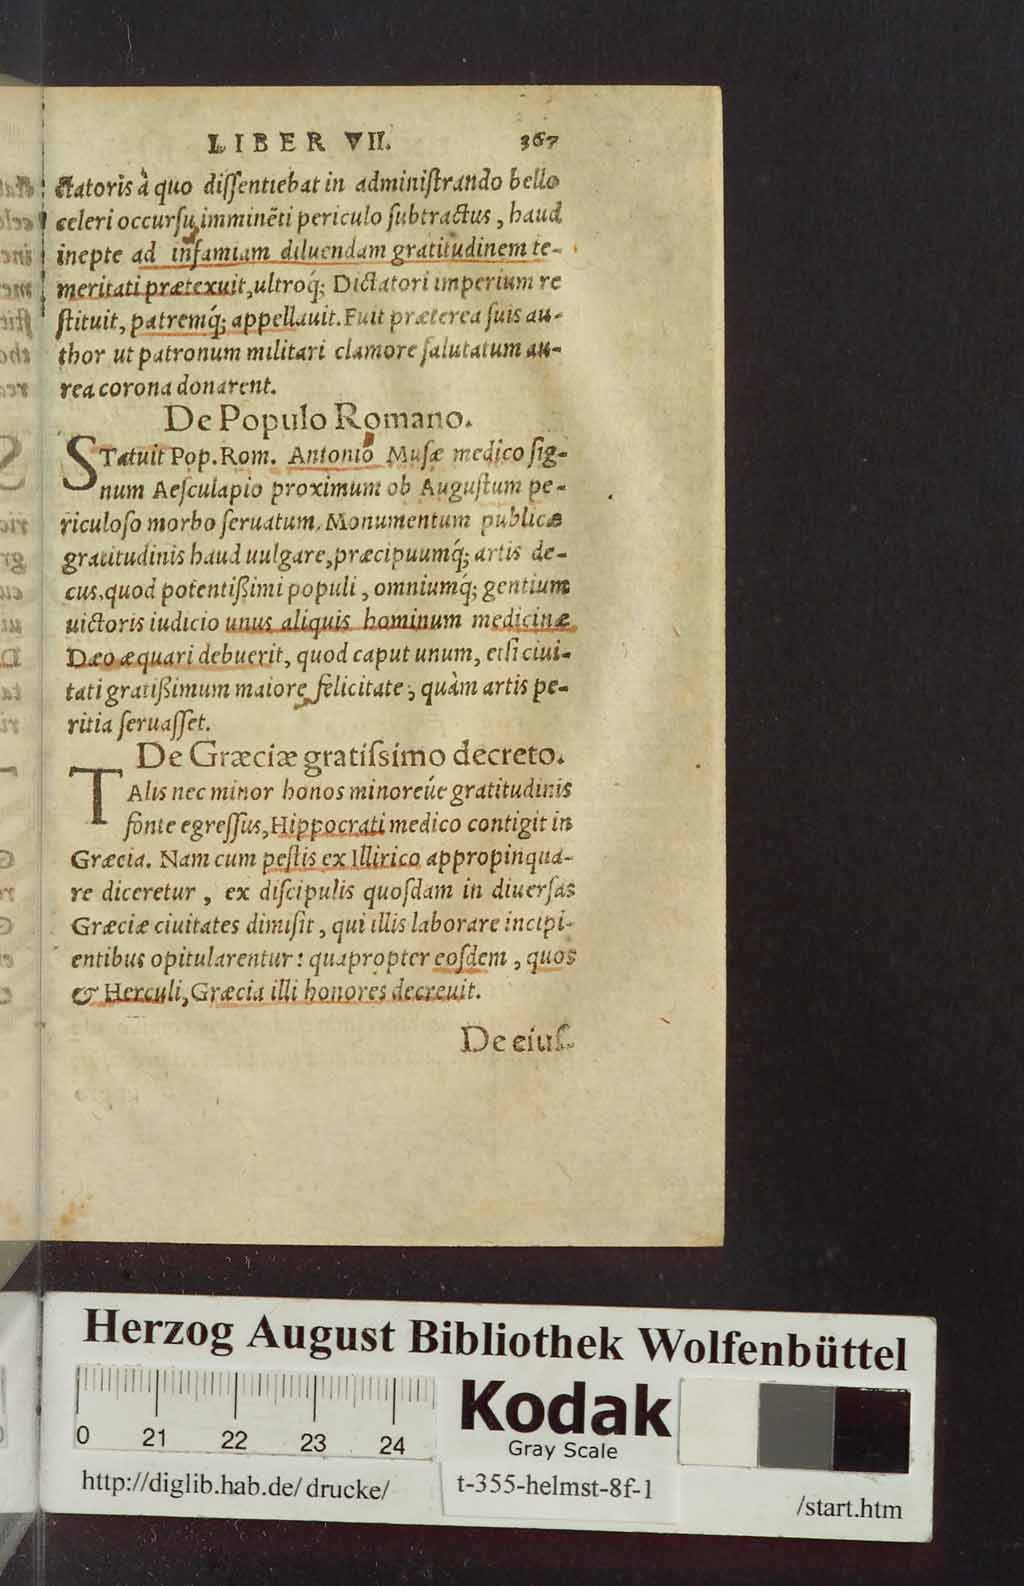 LIBER VII. 367
ctatoris à quo dissentiebat in administrando bello
celeri occursu imminēti periculo subtractus, haud
inepte ad infamiam diluendam gratitudinem te-
meritati prætexuit, ultroq́; Dictatori imperium re
stituit, patremq́; appellauit. Fuit præterea suis au-
thor ut patronum militari clamore salutatum au-
rea corona donarent.
De Populo Romano.
STatuit Pop. Rom. Antonio Musæ medico sig-
num Aesculapio proximum ob Augustum pe-
riculoso morbo seruatum. Monumentum publicæ
gratitudinis haud uulgare, præcipuumq́; artis de-
cus, quod potentißimi populi, omniumq́; gentium
uictoris iudicio unus aliquis hominum medicinæ
Dæo æquari debuerit, quod caput unum, etsi ciui-
tati gratißimum maiore felicitate, quàm artis pe-
ritia seruasset.
De Græciæ gratissimo decreto.
TAlis nec minor honos minoreúe gratitudinis
fonte egressus, Hippocrati medico contigit in
Græcia. Nam cum pestis ex Illirico appropinqua-
re diceretur, ex discipulis quosdam in diuersas
Græciæ ciuitates dimisit, qui illis laborare incipi-
entibus opitularentur: quapropter eosdem, quos
& Herculi, Græcia illi honores decreuit.
De eius.
Herzog August Bibliothek Wolfenbüttel
0 21 22 23 24
Kodak
Gray Scale
http://diglib.hab.de/drucke/ t-355-helmst-8f-1 /start.htm